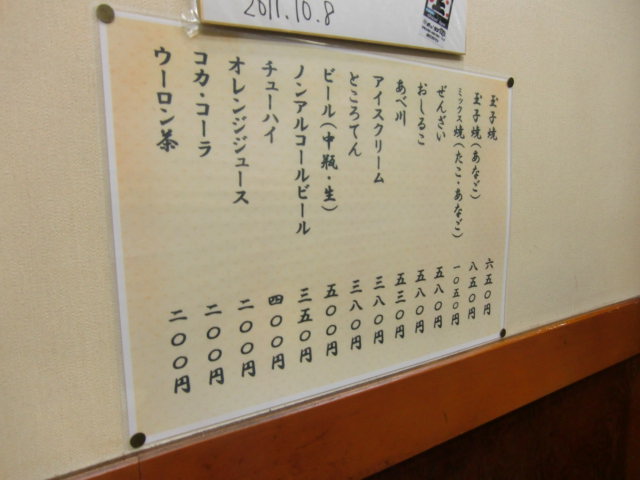 2011.10.8
玉子焼 六五〇円
玉子焼(あなご) 八五〇円
ミックス焼(たこ・あなご) 一〇五〇円
ぜんざい 五八〇円
おしるこ 五八〇円
あべ川 五三〇円
アイスクリーム 三八〇円
ところてん 三八〇円
ビール(中瓶・生) 五〇〇円
ノンアルコールビール 三五〇円
チューハイ 四〇〇円
オレンジジュース 二〇〇円
コカ・コーラ 二〇〇円
ウーロン茶 二〇〇円